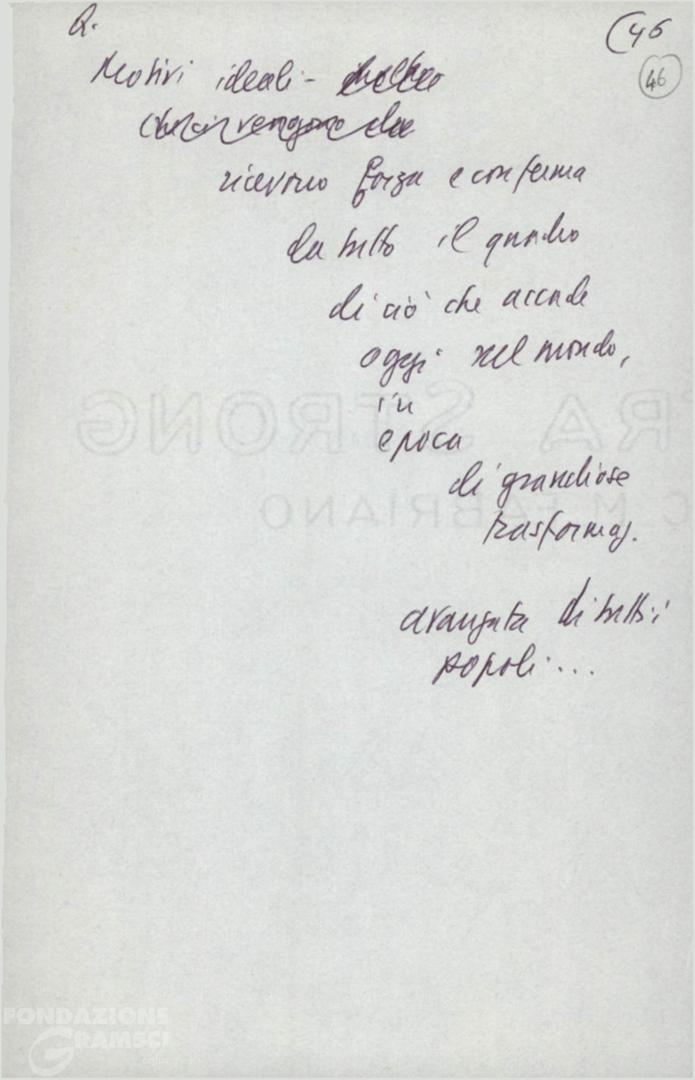 Q.
(46
46
Motivi ideali -
ricevono forza e conferma
da tutto il quadro
di ciò che accade
oggi nel mondo,
in
epoca
di grandiose
trasformaz.
avanzata di tutti i
popoli...
EXTRA STRONG
C.M. FABRIANO
FONDAZIONE
GRAMSCI